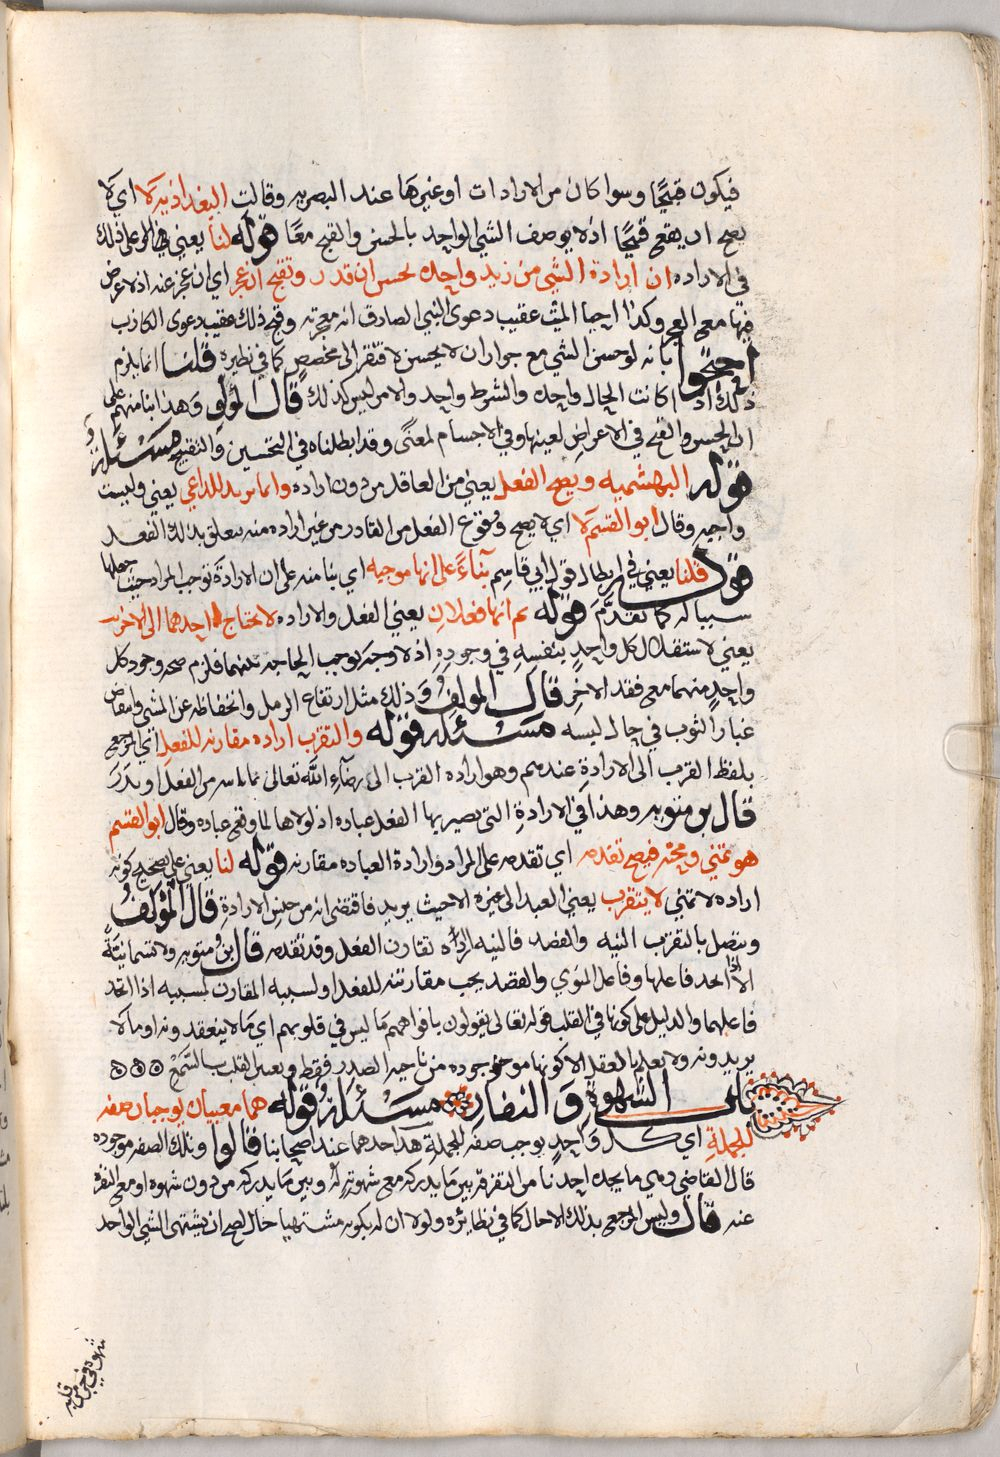 فيكون قبيحًا وسوا كان من الارادات او غيرها عند البصريه وقالت البغداذيه لا اي لا
يصح ان يقع قبيحًا اذ لا يوصف الشي الواحد بالحسن والقبح معًا قوله لنا يعني في الرد على ذلك
في الاراده ان ارادة الشي من زيد واحده تحسن ان قدر وتقبح ان عجز اي ان عجز عنه اذ لا غرض
فيها مع العجز وكذا احيا الميت عقيب دعوى النبي الصادق انه معجزته وقبح ذلك عقيب دعوى الكاذب
احتجوا بانه لو حسن الشي مع جواز ان لا يحسن لافتقر الى مخصص كما في نظيره قلنا انما يلزم
ذلك اذا كانت الحال واحده والشرط واحد والامر ليس كذلك قال المؤلف وهذا بنا منهم على
ان الحسن والقبح في الاعراض لعينها وفي الاجسام لمعنًى وقد ابطلناه في التحسين والتقبيح مسئله
قوله البهشميه ويصح الفعل يعني من العاقل من دون اراده وانما يريد للداعي يعني وليست
واجبه وقال ابو القسم لا اي لا يصح وقوع الفعل من القادر من غير اراده منه تتعلق بذلك الفعل
قوله قلنا يعني في ابطال قول ابي قاسم بنآءً على انها موجبه اي بنا منه على ان الارادة توجب المراد حيث جعلها
سببا له كما تقدَّم قوله ثم انها فعلان يعني الفعل والاراده لا يحتاج احدهما الى الاخر
يعني لاستقلال كل واحدٍ بنفسه في وجوده اذ لا وجه يوجب الحاجه بينهما فلزم صحه وجود كل
واحدٍ منهما مع فقد الاخر قال المولف وذلك مثل ارتفاع الرمل وانخفاظه عن المشي وانتفاض
غبار الثوب في حال لبسه مسئله قوله والتقرب اراده مقارنه للفعل اي المرجع
بلفظ القرب الى الارادة عندهم وهو اراده القرب الى رضآء الله تعالى من الفعل او يترك
قال بن متويه وهذا في الارادةِ التي يصير بها الفعل عباده اذ لولاها لما وقع عباده وقال ابو القسم
هو تمني ومحبه فيصح تقدمه اي تقدمه على المراد وارادة العباده مقارنه قوله لنا يعني على تصحيح كونه
اراده لا تمني لا يتقرب يعني العبد الى غيره الا حيث يريد فاقتضى انه من جنس الارادةِ قال المؤلف
ويتصل بالتقرب النيه والقصد فالنيه اراده تقارن الفعل وقد تقدمه قال بن متويه ولا تسما نيةً
الا اذا اتحد فاعلها وفاعل المنوي والقصد يجب مقارنته للفعل او لسببه المقارن لمسببه اذا اتحد
فاعلهما والدليل على كونها في القلب قوله تعالى يقولون بافواههم ما ليس في قلوبهم اي ما لا ينعقدونه او ما لا
يريدونه ولا يعلم بالعقل الا كونها موجوده من ناحيه الصدر فقط وتعين القلب بالسمع
باب الشهوة والنفار مسئله قوله هما معنيان يوجبان صفه
للجملةِ اي كل واحدٍ يوجب صفه للجملةِ هذا احدهما عند اصحابنا قالوا وتلك الصفه موجوده
قال القاضي وهي ما يجده احدنا من التفرقه بين ما يدركه مع شهوته له وبين ما يدركه من دون شهوه او مع النفره
عنه قال وليس المرجع بذلك الاحال كما في نظائره ولولا ان له بكونه مشتهيا حال لصح ان يشتهى الشي الواحد
شهوه في جزء من قلبه